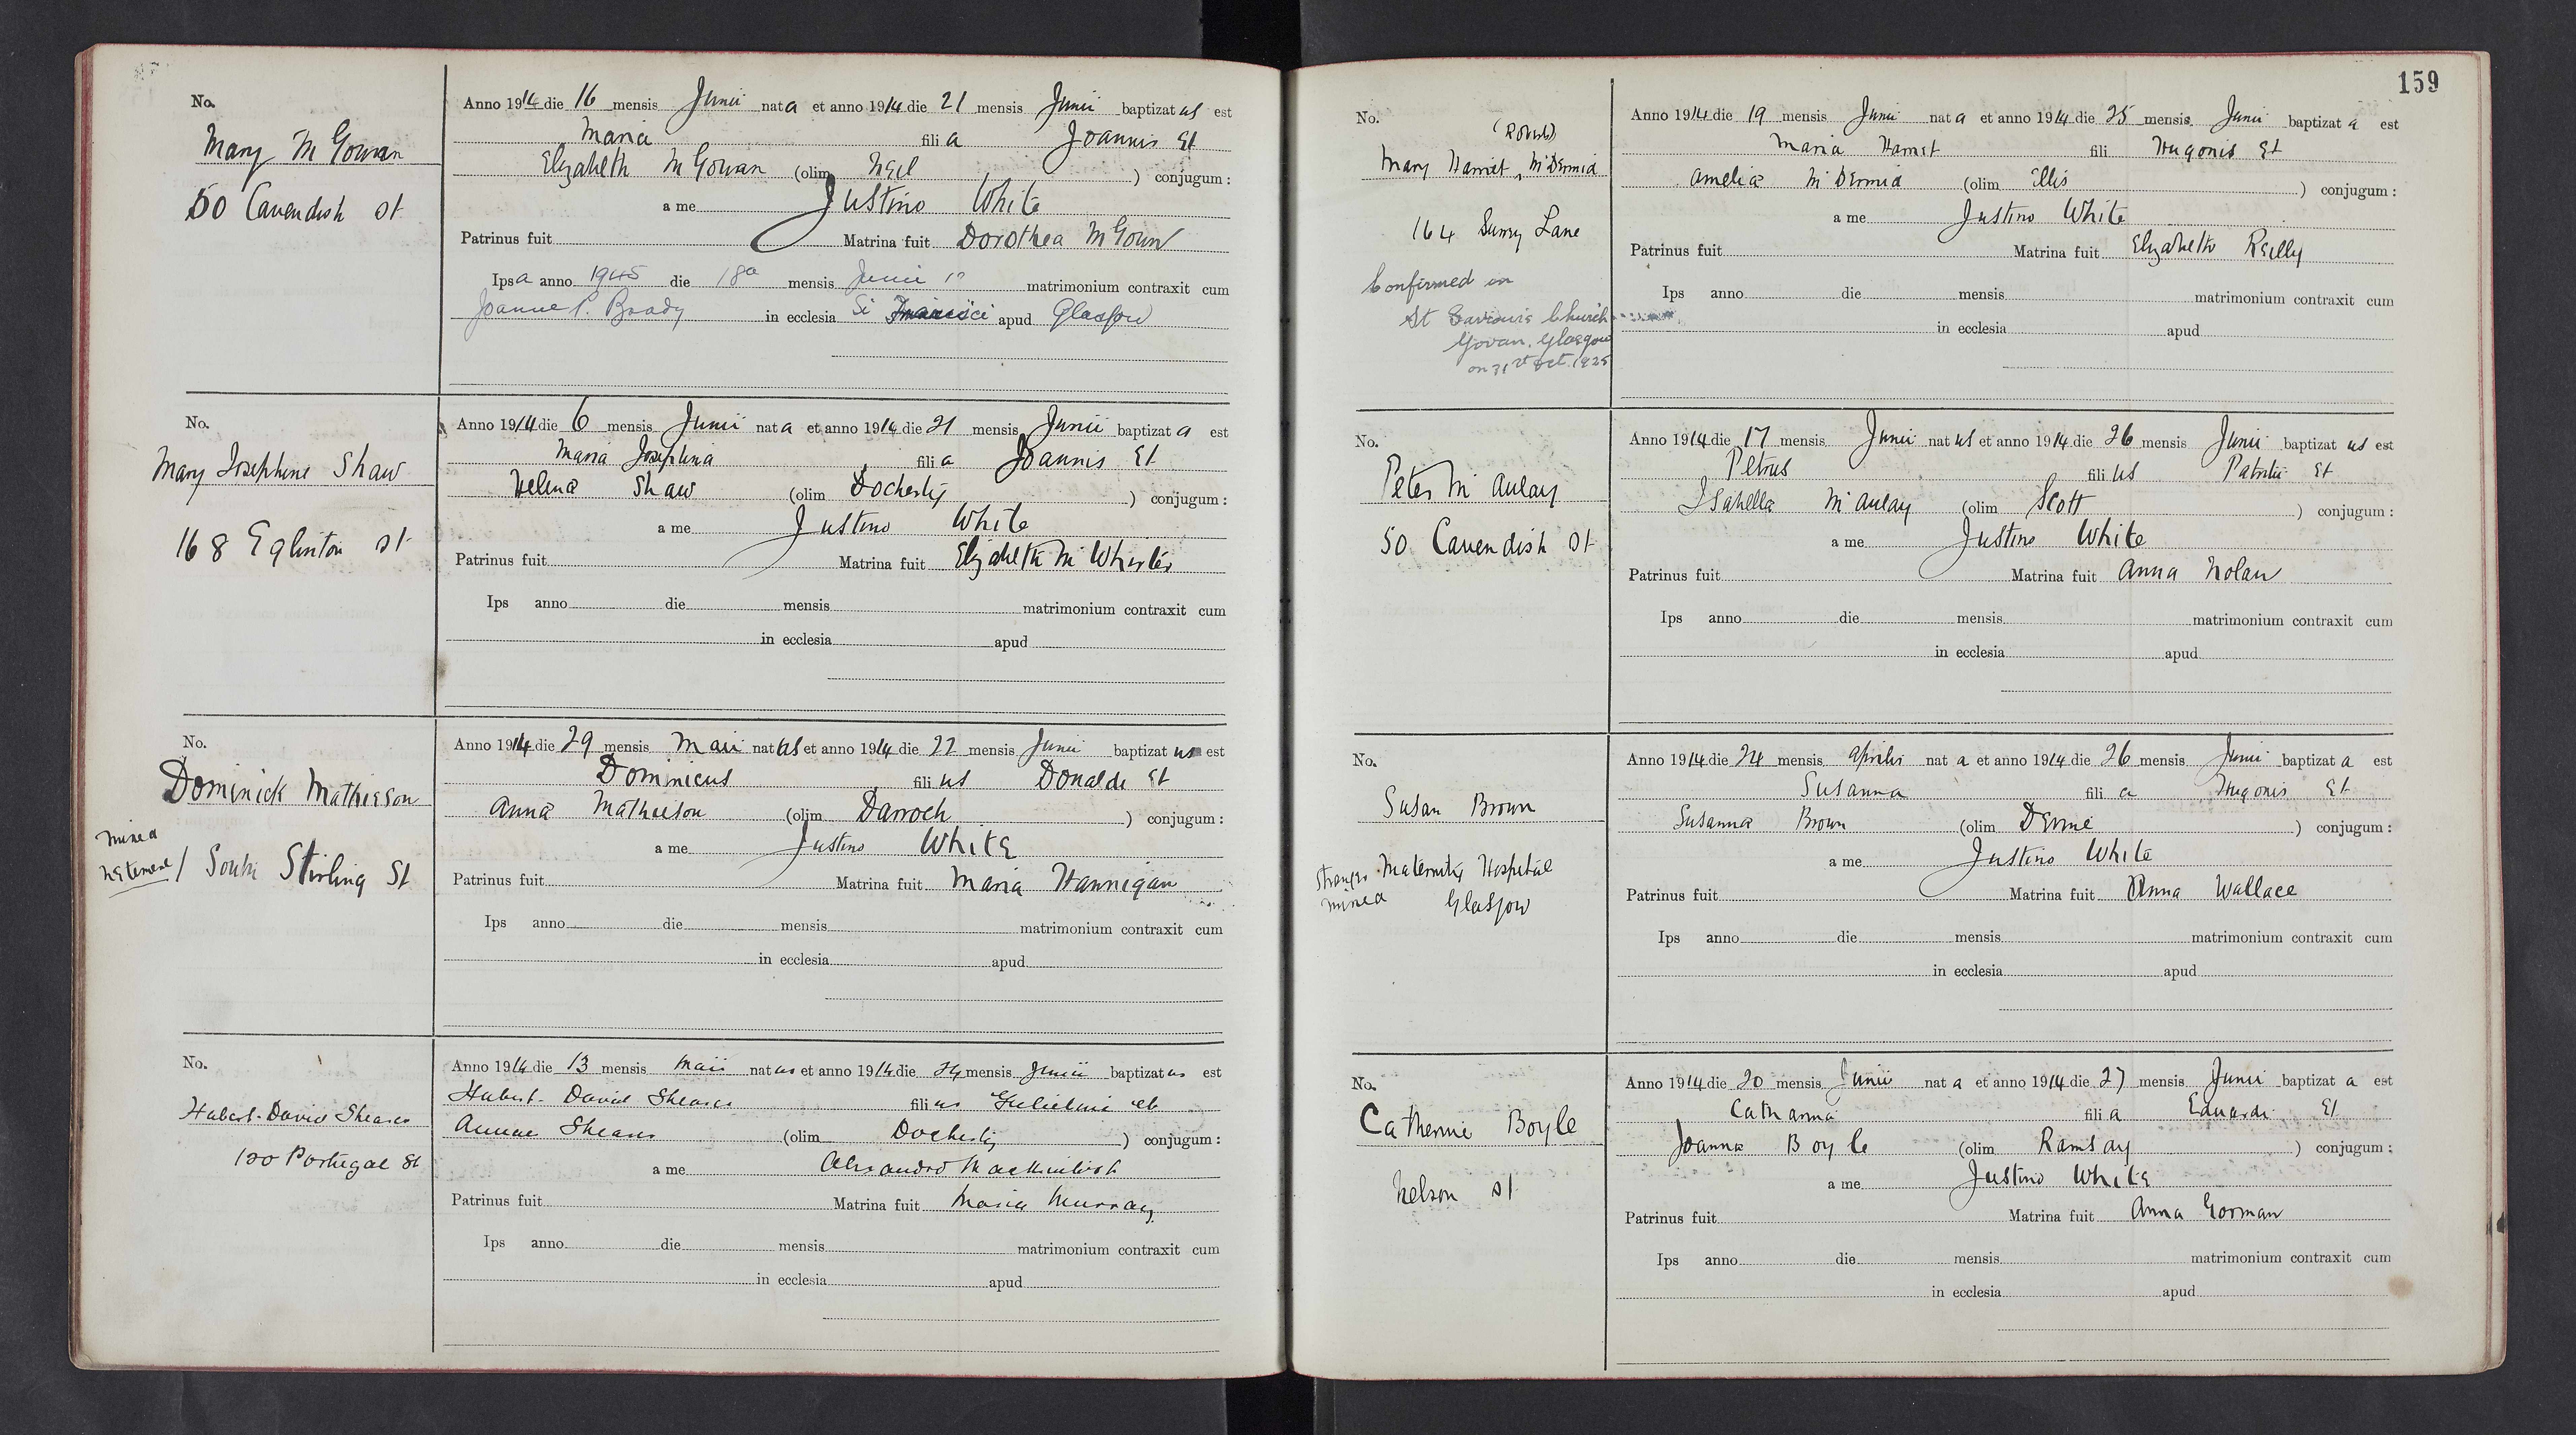 No.
Mary McGowan
50 Cavendish St
Anno 1914 die 16 mensis Junii nata et anno 1914 die 21 mensis Junii baptizatus est
Maria filia Joannis Et
Elizabeth McGowan (olim Neil ) conjugum :
a me Justino White
Patrinus fuit Matrina fuit Dorothea McGown
Ipsa anno 1945 die 18a mensis Junii matrimonium contraxit cum
Joanne P. Brady in ecclesia Si Francisci apud Glasgow
No.
Mary Josephine Shaw
168 Eglinton St
Anno 1914 die 6 mensis Junii nata et anno 1914 die 21 mensis Junii baptizata est
Maria Josephina filia Joannis Et
Helena Shaw (olim Docherty ) conjugum :
a me Justino White
Patrinus fuit Matrina fuit Elizabeth McWhirter
Ips anno die mensis matrimonium contraxit cum
in ecclesia apud
No.
Dominick Mathieson
mixed
1 South Stirling St
Anno 1914 die 29 mensis Maii natus et anno 1914 die 22 mensis Junii baptizatus est
Dominicus filius Donaldi Et
Anna Mathieson (olim Darroch ) conjugum :
a me Justino White
Patrinus fuit Matrina fuit Maria Hannigan
Ips anno die mensis matrimonium contraxit cum
in ecclesia apud
No.
Hubert David Shearer
120 Portugal St
Anno 1914 die 13 mensis Maii natus et anno 1914 die 24 mensis Junii baptizatus est
Hubert David Shearer filius Gulielmi et
Annae Shearer (olim Docherty ) conjugum :
a me Alexandro Mackintosh
Patrinus fuit Matrina fuit Maria Murray
Ips anno die mensis matrimonium contraxit cum
in ecclesia apud
159
No.
(Robert)
Mary Harriet McDermid
164 Surrey Lane
Confirmed in
St Saviour's Church
Govan, Glasgow
on 31st Oct. 1925
Anno 1914 die 19 mensis Junii nata et anno 1914 die 25 mensis Junii baptizata est
Maria Harriet fili Hugonis Et
Amelia McDermid (olim Ellis ) conjugum :
a me Justino White
Patrinus fuit Matrina fuit Elizabeth Reilly
Ips anno die mensis matrimonium contraxit cum
in ecclesia apud
No.
Peter McAulay
50 Cavendish St
Anno 1914 die 17 mensis Junii natus et anno 1914 die 26 mensis Junii baptizatus est
Petrus filius Patritii Et
Isabella McAulay (olim Scott ) conjugum :
a me Justino White
Patrinus fuit Matrina fuit Anna Nolan
Ips anno die mensis matrimonium contraxit cum
in ecclesia apud
No.
Susan Brown
Maternity Hospital
mixed Glasgow
Anno 1914 die 24 mensis Aprilis nata et anno 1914 die 26 mensis Junii baptizata est
Susanna filia Hugonis Et
Susanna Brown (olim ) conjugum :
a me Justino White
Patrinus fuit Matrina fuit Anna Wallace
Ips anno die mensis matrimonium contraxit cum
in ecclesia apud
No.
Catherine Boyle
Nelson St
Anno 1914 die 20 mensis Junii nata et anno 1914 die 27 mensis Junii baptizata est
Catharina filia Eduardi Et
Joanna Boyle (olim Ramsay ) conjugum :
a me Justino White
Patrinus fuit Matrina fuit Anna Gorman
Ips anno die mensis matrimonium contraxit cum
in ecclesia apud